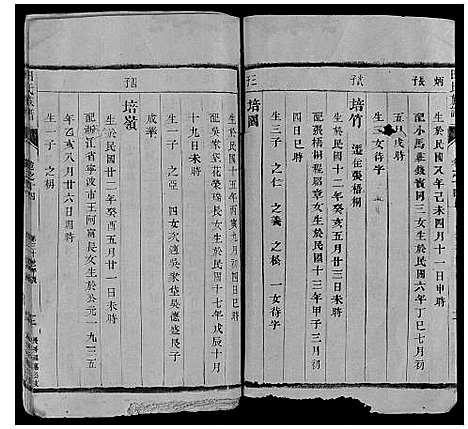 炳 長子
生於民國又年己未四月十一日申時
配小馬莊錢賓同三女生於民國六年丁巳七月初
五日戌時
生三女待字
次子
培竹 遷住張梧桐
生於民國十二年癸亥五月廿三日未時
配張梧桐程鄂章女生於民國十三年甲子三月初
四日巳時
生三子 之仁 之義 之楊 一女待字
三子
培國
生於民國十五年丙寅九月初
配吳家荒花榮瑞長女生於民國十七年戊辰十月
十九日未時
生一子 之亞 四女次適吳家垈吳德盛長子
成華
四子
培嶺
生於民國廿二年癸酉五月廿一日未時
配浙江省寧波市王阿富長女生於公元一九三五
年乙亥八月廿六日卯時
生一子 之桐